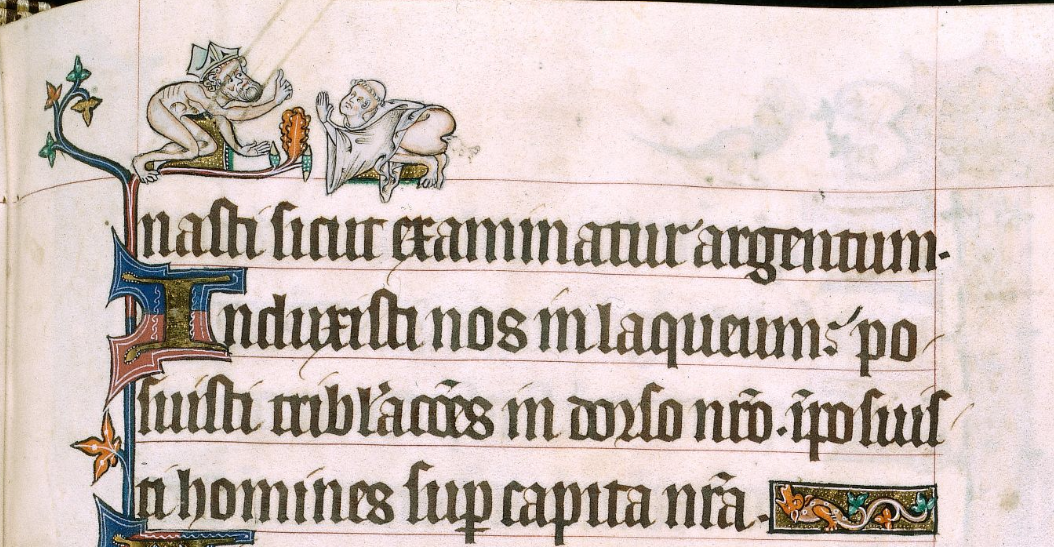 nasti sicut examinatur argentum.
Induxisti nos in laqueum: po
suisti tribl'acões in dorso nrõ. īposuis
ti homines sup capita nrã.